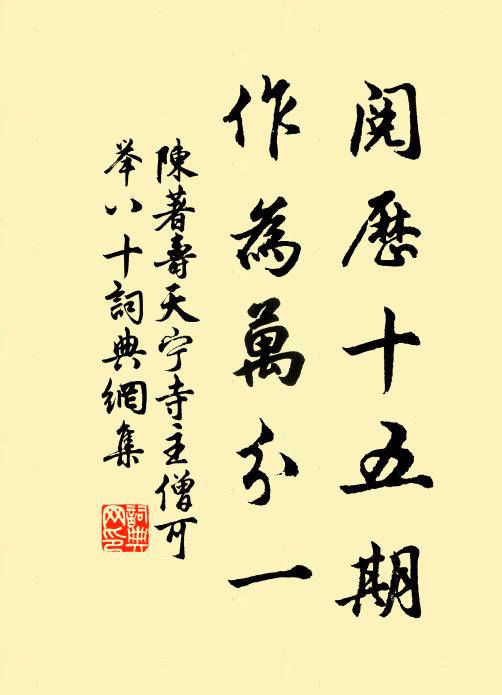 閱歷十五期
作為萬分一
陳著壽天宁寺主僧可
举八十詞典網集
詞典网印